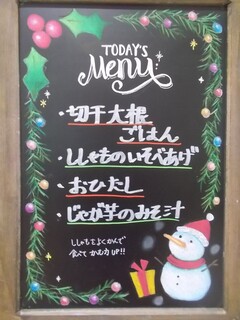 TODAY'S
Menu
・切干大根
ごはん
・ししゃものいそべあげ
・おひたし
・じゃが芋のみそ汁
ししゃもをよくかんで
食べて かむ力 UP!!